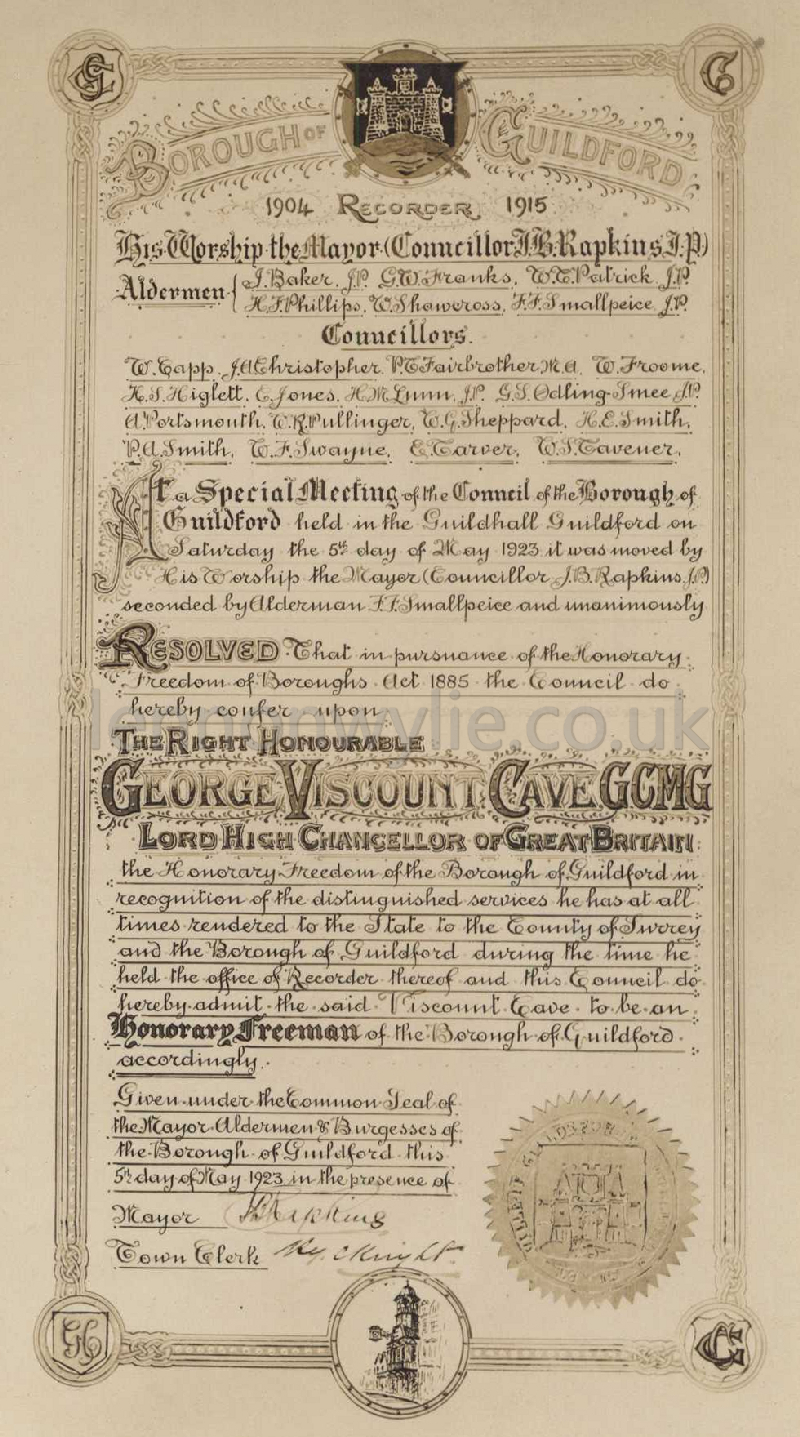 BOROUGH OF GUILDFORD
1904 RECORDER 1915
His Worship the Mayor (Councillor J.B. Rapkins, J.P)
Aldermen { J. Baker, J.P. G.W. Franks, W.T. Patrick, J.P.
H.F. Phillips, W. Shawcross, F.F. Smallpeice, J.P.
Councillors.
W. Capp, J.A. Christopher, P.C. Fairbrother M.A, W. Froome,
H.S. Higlett, C. Jones, H.M. Lunn, J.P. G.S. Odling-Smee J.P.
A. Portsmouth, W.R. Pullinger, W.G. Sheppard, H.E. Smith,
P.A. Smith, W.F. Swayne, E. Carver, W.S. Tavener,
At a Special Meeting of the Council of the Borough of
Guildford held in the Guildhall Guildford on
Saturday the 5th day of May 1923 it was moved by
His Worship the Mayor (Councillor J.B. Rapkins, J.P)
seconded by Alderman F.F. Smallpeice and unanimously
RESOLVED That in pursuance of the Honorary
Freedom of Boroughs Act 1885 the Council do
hereby confer upon
THE RIGHT HONOURABLE
GEORGE, VISCOUNT CAVE, GCMG
LORD HIGH CHANCELLOR OF GREAT BRITAIN
the Honorary Freedom of the Borough of Guildford in
recognition of the distinguished services he has at all
times rendered to the State to the County of Surrey
and the Borough of Guildford during the time he
held the office of Recorder thereof and this Council do
hereby admit the said Viscount Cave to be an
Honorary Freeman of the Borough of Guildford
accordingly.
Given under the Common Seal of
the Mayor Aldermen & Burgesses of
the Borough of Guildford this
5th day of May 1923 in the presence of
Mayor
Town Clerk Knight